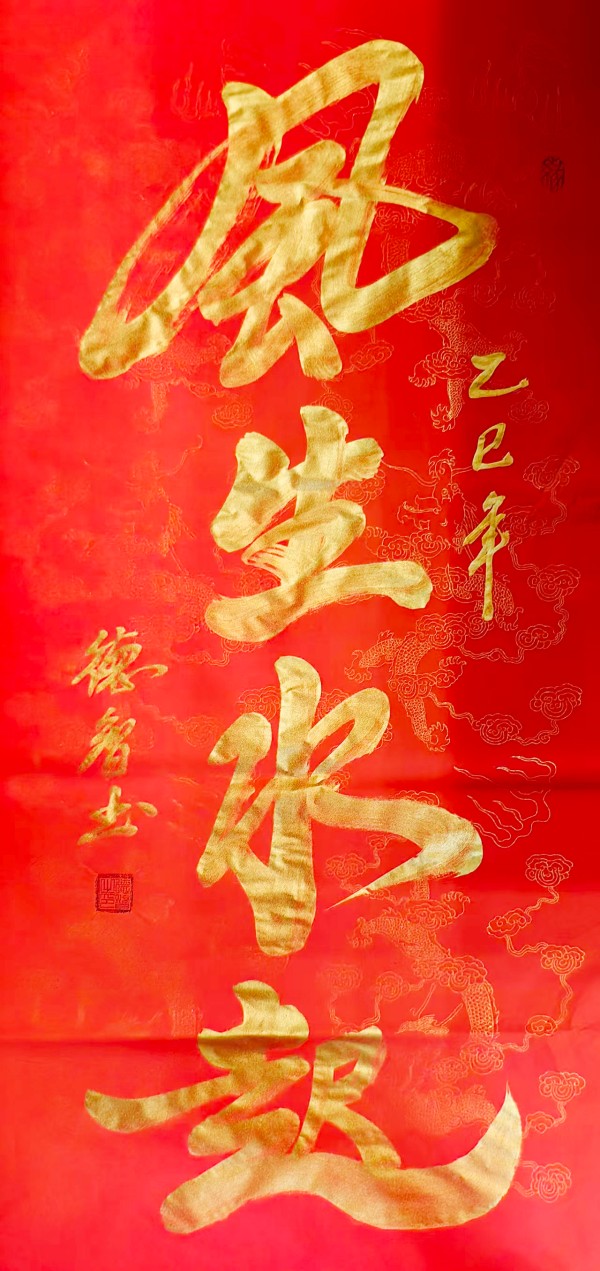 乙巳年
風生水起
德智书